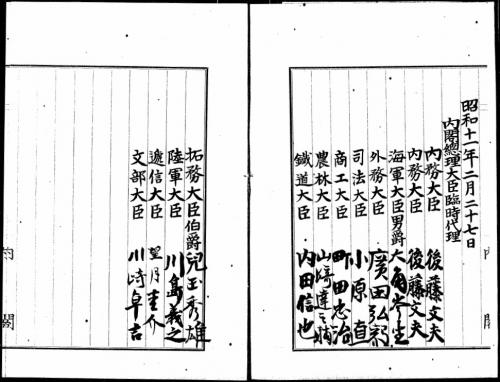 昭和十一年二月二十七日
內閣總理大臣臨時代理
內務大臣 後藤文夫
內務大臣 後藤文夫
海軍大臣男爵 大角岑生
外務大臣 廣田弘毅
司法大臣 小原直
商工大臣 町田忠治
農林大臣 山崎達之輔
鐵道大臣 內田信也
拓務大臣伯爵 兒玉秀雄
陸軍大臣 川島義之
遞信大臣 望月圭介
文部大臣 川崎卓吉
內閣